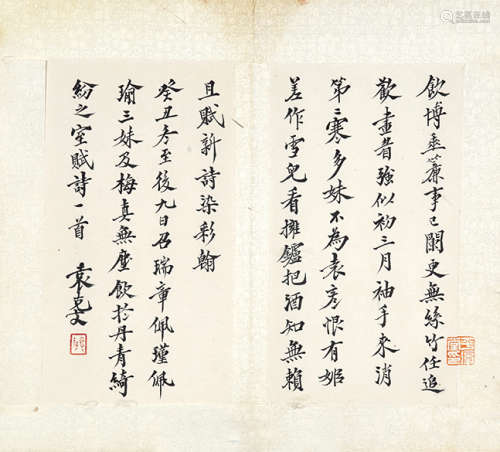 飲博垂簾事已闌更無絲竹任追
歡畫眉強似初三月袖手來消
第二寒多妹不為袁彦恨有姬
差作雪兒看擁鑪把酒知無賴
且賦新詩染彩翰
癸丑冬至後九日召瑞章佩瑾佩
瑜三妹及梅真無塵飲於丹青綺
紛之室賦詩一首 袁克文